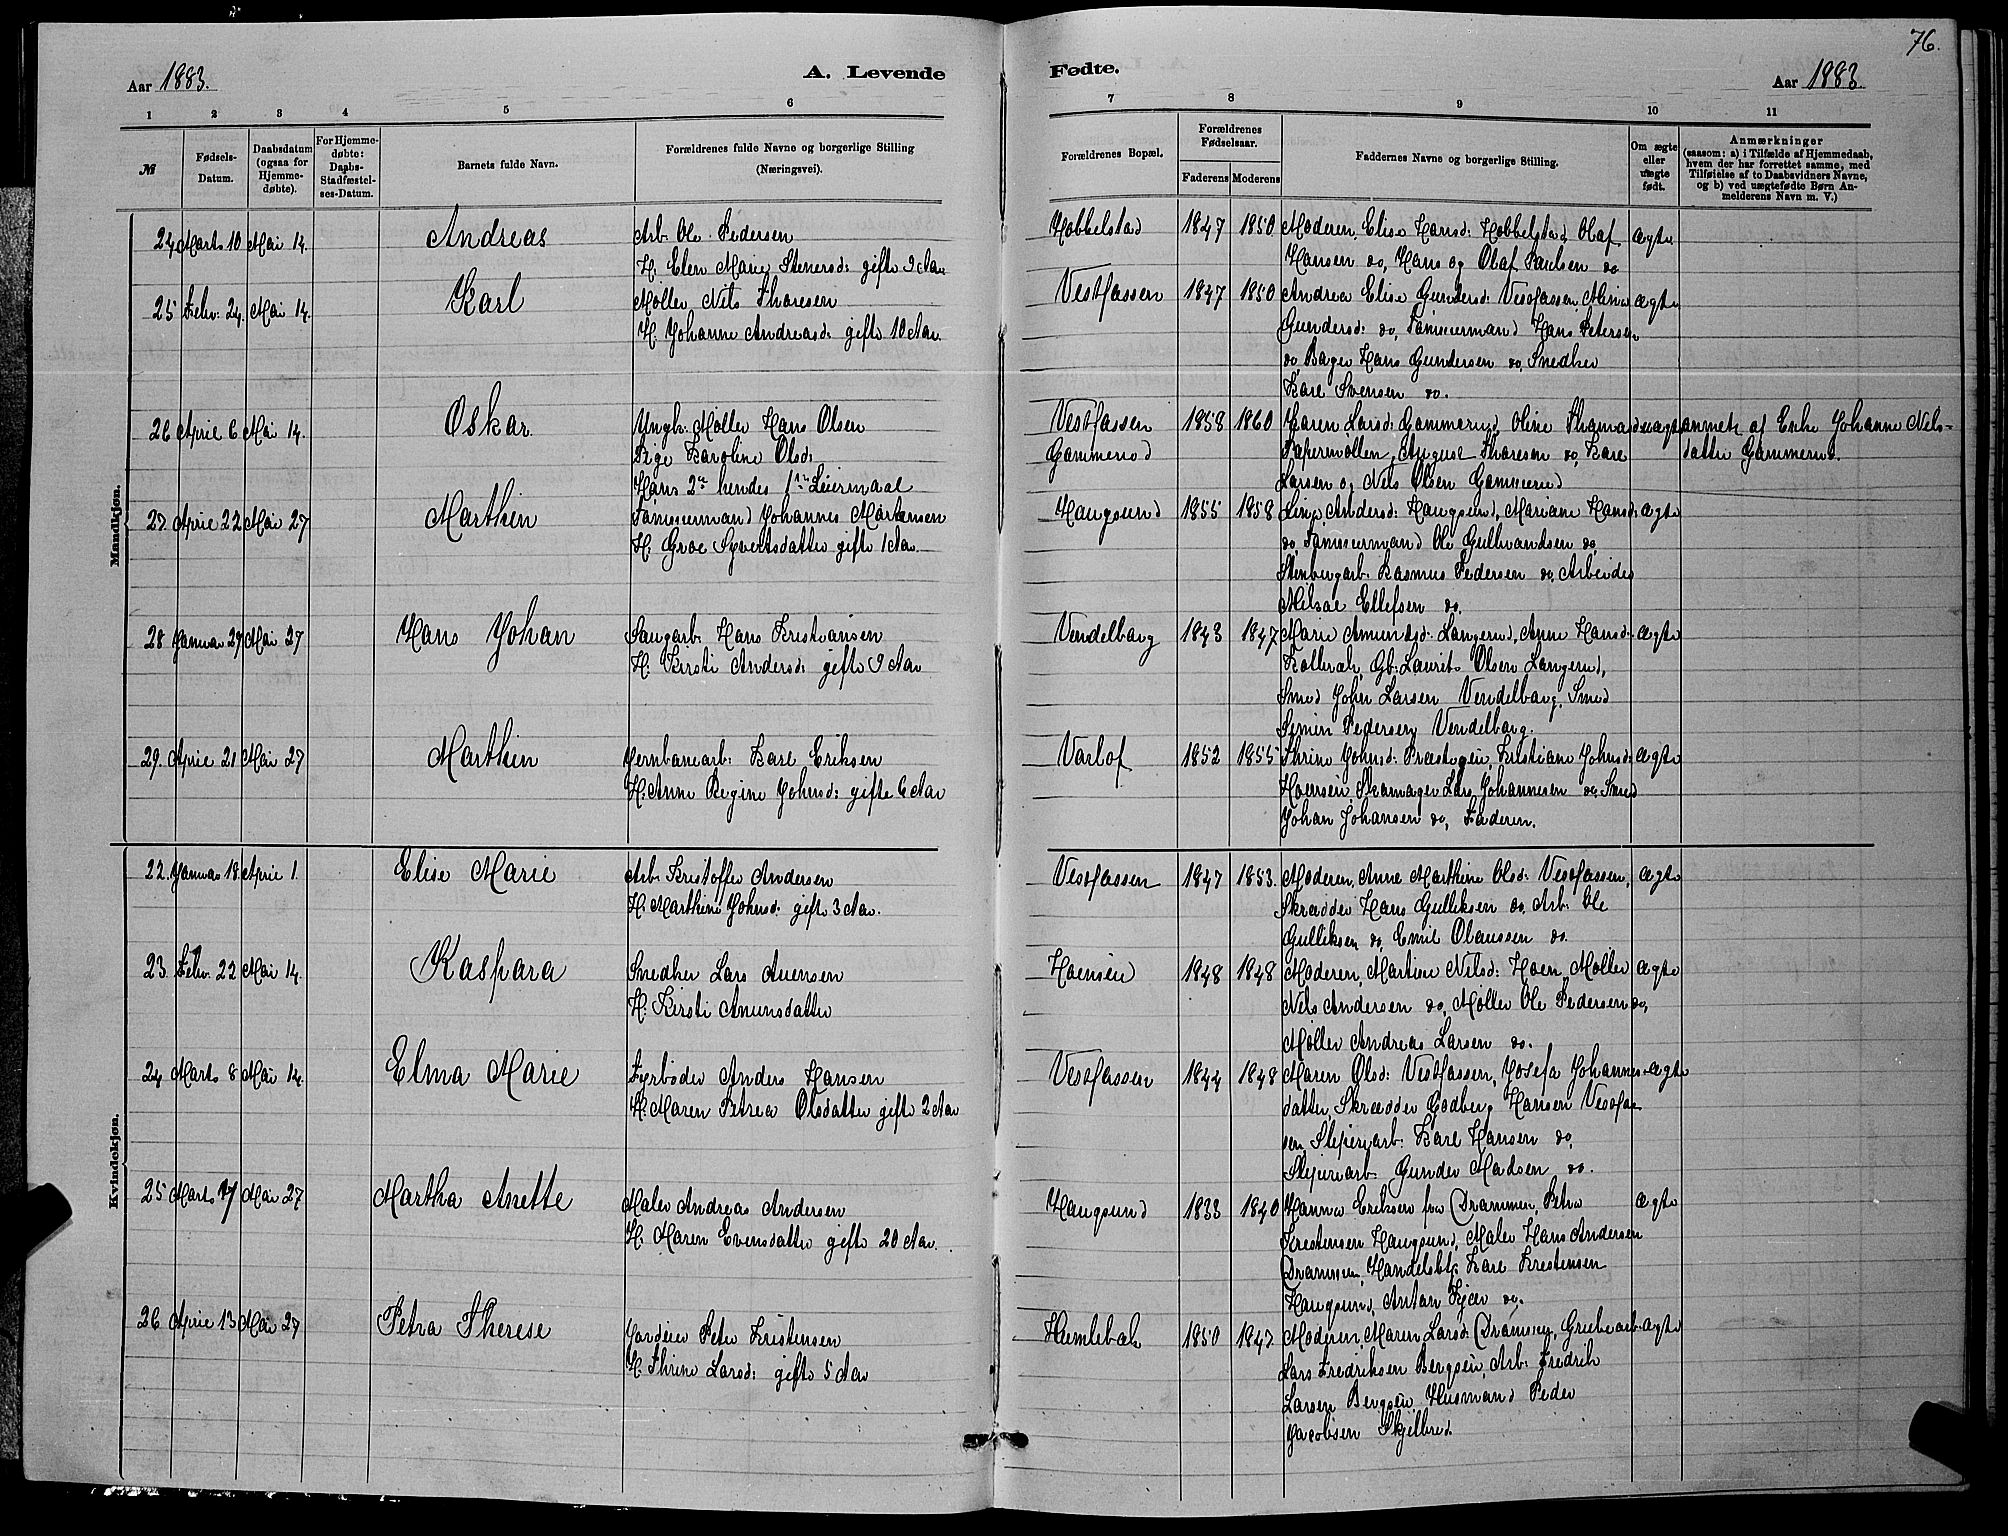 76.
Aar 1883. A. Levende Fødte. Aar 1883
1 2 3 4 5 6 7 8 9 10 11
№
Fødsels-Datum.
Daabsdatum (ogsaa for Hjemme-døbte).
For Hjemme-døbte: Daabs-Stadfæstel-ses-Datum.
Barnets fulde Navn.
Forældrenes fulde Navne og borgerlige Stilling (Næringsvei).
Forældrenes Bopæl.
Forældrenes Fødselsaar.
Faderens Moderens
Faddernes Navne og borgerlige Stilling.
Om ægte eller uægte født.
Anmærkninger
(saasom: a) i Tilfælde af Hjemmedaab, hvem der har forrettet samme, med Tilføielse af to Daabsvidners Navne, og b) ved uægtefødte Børn An-melderens Navn m. V.)
Mandkjøn.
24 Marts 10 Mai 14. Andreas Arb. Ole Pedersen Hobbelstad 1847 1850 Moderen, Elise Hansd: Hobbelstad, Olaf ægte
H. Elen Marie Stenersd: gifte 9 Aar Hansen do, Hans og Olaf Paulsen do
25 Febr: 24. Mai 14. Karl Møller Nils Thoresen Vestfossen 1847 1850 Andrea Elise Gundersd: Vestfossen, Mina ægte
H. Johanne Andreasd: gifte 10 Aar. Gundersd: do, Tømmermand Hans Petersen
do, Bager Hans Gundersen do, Snedker
Karl Svensen do.
26 April 6 Mai 14. Oskar Ungk. Møller Hans Olsen Vestfossen 1858 1860 Karen Larsd: Gommerud, Oline Thomasd uægte anmeldt af Enke Johanne Nils-
Pige Karoline Olsd: Gommerud Papermøllen, August Thoresen do, Karl datter Gommerud.
Hans 2det hendes 1ste Leiermaal Larsen og Nils Olsen Gommerud
27. April 22 Mai 27 Marthin Tømmermand Johannes Martinsen Haugsund 1855 1858 Lina Andersd: Haugsund, Mariane Hansd: ægte
H. Groe Syvertsdatter gifte 1 Aar. do, Tømmermand Ole Gulbrandsen do,
Stenbergarb. Rasmus Pedersen do, Arbeider
Mikal Ellefsen do.
28 Januar 29 Mai 27 Hans Johan Saugarb. Hans Kristiansen Vendelborg 1843 1847 Marie Amundsd: Langerud, Anne Hansd: ægte
H. Kirsti Andersd: gifte 9 Aar Kollerak, Gb: Laurits Olsen Langerud,
Smed John Larsen Vendelborg, Smed
Simen Pedersen Vendelborg.
29. April 21 Mai 27 Marthin Jernbanearb: Karl Eriksen Varlof 1852 1855 Thrine Johnsd: Præstegein, Kristiane Johnsd: ægte
H. Anne Regine Johnsd: gifte 6 Aar Hoensen, Skomager Lars Johannesen do, Smed
Johan Johansen do, Faderen.
Kvindekjøn.
22. Januar 18. April 1. Elise Marie Arb. Kristoffer Andersen Vestfossen 1847 1853. Moderen, Anne Marthine Olsd: Vestfossen, ægte
H. Marthine Johnsd: gifte 3 Aar. Skrædder Hans Gulliksen do, Arb. Ole
Gulliksen do, Emil Olaussen do.
23. Febr. 22 Mai 14. Kaspara Snedker Lars Auensen Hoensen 1848 1848 Moderen, Martine Nilsd: Hoen, Møller ægte
H. Kirsti Amunsdatter Nils Andersen do, Møller Ole Pedersen do,
Møller Andreas Larsen do.
24 Marts 8 Mai 14. Elma Marie Fyrbøder Anders Hansen Vestfossen 1844 1848 Maren Olsd: Vestfossen, Josefa Johannes- ægte
H. Maren Petrea Olsdatter gifte 2 Aar datter, Skrædder Godberg Hansen Vestfos
sen, Sliperiarb: Karl Hansen do,
Sliperiarb. Gunder Madsen do.
25 Marts 17 Mai 27 Martha Anette Maler Andreas Andersen Haugsund 1833 1840 Hanna Eriksen fra Drammen, Petra ægte
H. Maren Evensdatter gifte 20 Aar. Kristensen Haugsund, Maler Hans Andersen
Drammen, Handelsbtj: Karl Kristensen
Haugsund, Anton do.
26 April 13 Mai 27 Petra Therese Jordeier Peter Kristensen Humlebæk 1850 1847. Moderen, Maren Larsd: Drammen, Grubearb. ægte
H. Thrine Larsd: gifte 5 Aar Lars Fredriksen Bergsøn, Arb. Fredrik
Larsen Bergsøn, Husmand Peder
Jacobsen Skjelbred.